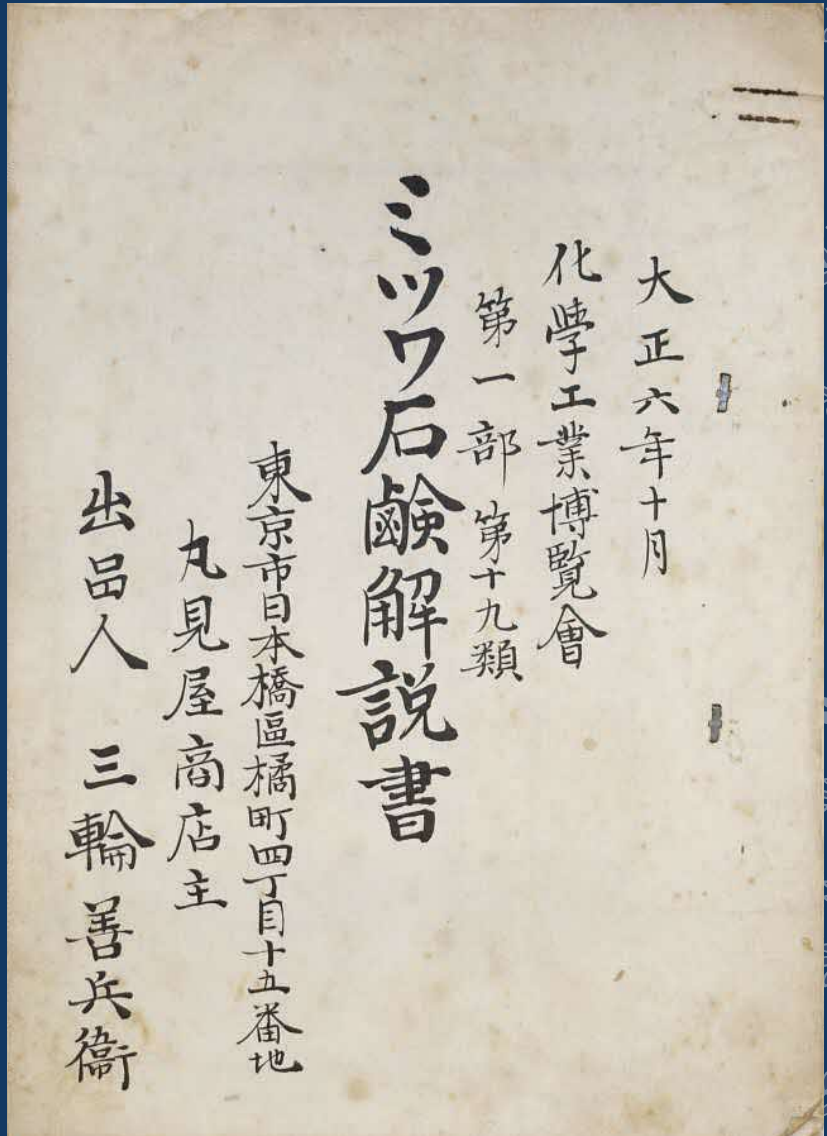 大正六年十月
化學工業博覧會
第一部 第十九類
ミツワ石鹸解説書
東京市日本橋區橘町四丁目十五番地
丸見屋商店主
出品人 三輪善兵衞